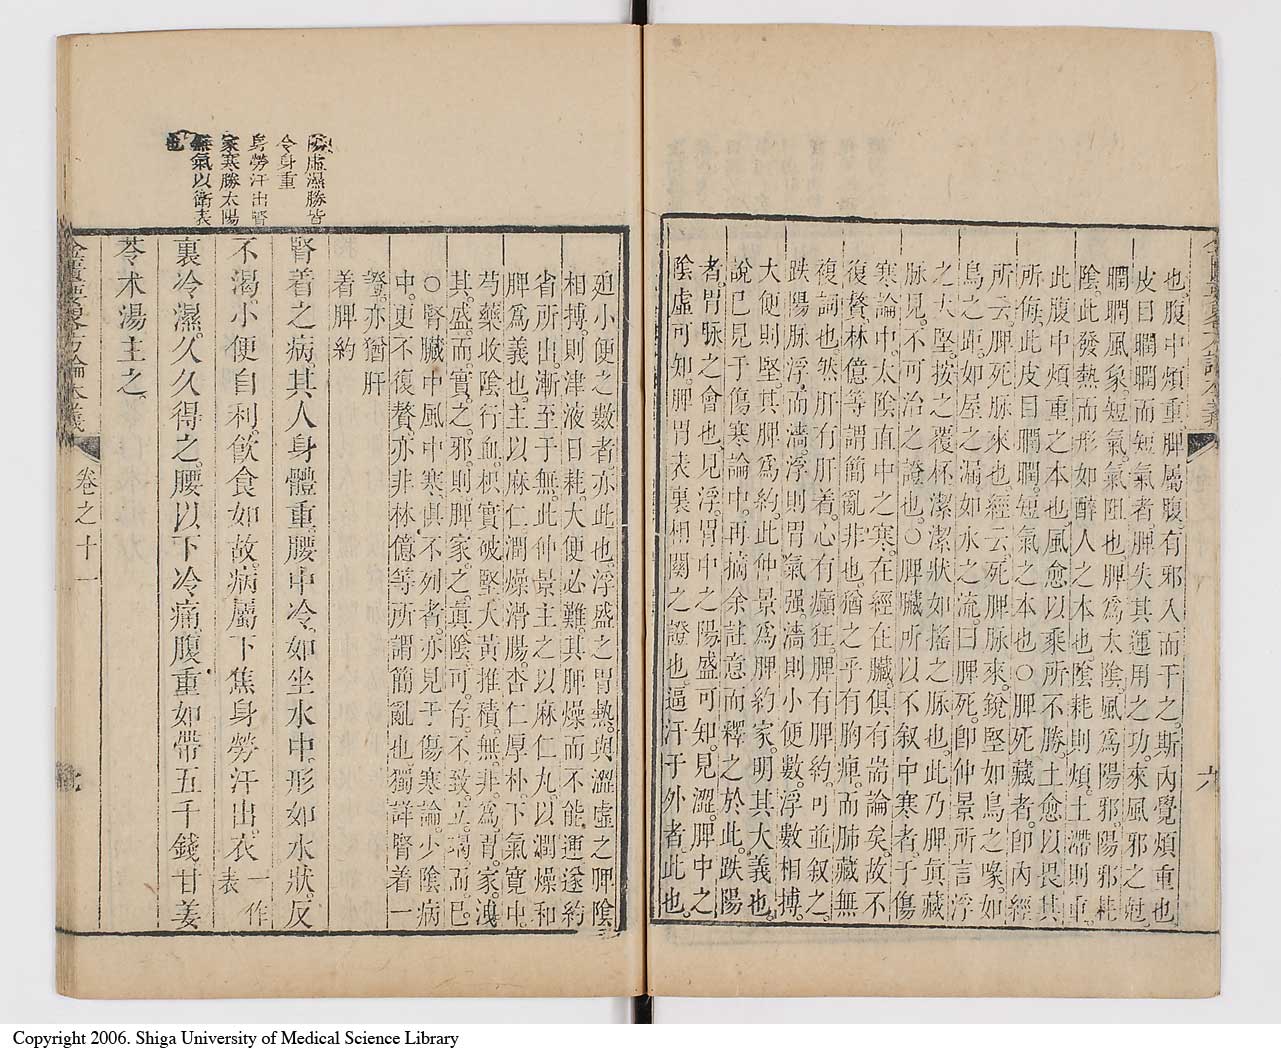 也腹中煩重脾屬腹有邪入而干之斯內覺煩重也
皮目瞤瞤而短氣者脾失其運用之功來風邪之尅
瞤瞤風象短氣氣阻也脾爲太陰風爲陽邪陽邪耗
陰此發熱而形如醉人之本也陰耗則煩土滯則重
此腹中煩重之本也風愈以乘所不勝土愈以畏其
所侮此皮目瞤瞤短氣之本也○脾死藏者卽內經
所云脾死脉來也經云死脾脉來銳堅如烏之喙如
鳥之距如屋之漏如水之流曰脾死卽仲景所言浮
之大堅按之覆杯潔潔狀如搖之脉也此乃脾眞藏
脉見不可治之證也○脾臟所以不叙中寒者于傷
寒論中太陰直中之寒在經在臟俱有耑論矣故不
復贅林億等謂簡亂非也猶之乎有胸痺而肺藏無
複詞也然肝有肝着心有癲狂脾有脾約可並叙之
趺陽脉浮而濇浮則胃氣强濇則小便數浮數相搏
大便則堅其脾爲約此仲景爲脾約家明其大義也
說已見于傷寒論中再摘余註意而釋之於此趺陽
者胃脉之會也見浮胃中之陽盛可知見澀脾中之
陰虛可知脾胃表裏相關之證也逼汗于外者此也
金匱要略方論本義
六
陽虛濕勝皆
令身重
身勞汗出腎
家寒勝太陽
無氣以衛表
也
廹小便之數者亦此也浮盛之胃熱與澀虛之脾陰
相搏則津液日耗大便必難其脾燥而不能運遂約
省所出漸至于無此仲景主之以麻仁丸以潤燥和
脾爲義也主以麻仁潤燥滑腸杏仁厚朴下氣寬中
芍藥收陰行血枳實破堅大黃推積無非爲胃家洩
其盛而實之邪則脾家之眞陰可存不致立竭而已
○腎臟中風中寒俱不列者亦見于傷寒論少陰病
中更不復贅亦非林億等所謂簡亂也獨詳腎着一
證亦猶肝
着脾約
腎着之病其人身體重腰中冷如坐水中形如水狀反
不渴小便自利飮食如故病屬下焦身勞汗出衣一作表
裏冷濕久久得之腰以下冷痛腹重如帶五千錢甘姜
苓术湯主之
金匱要略方論本義
卷之十一
七
Copyright 2006. Shiga University of Medical Science Library